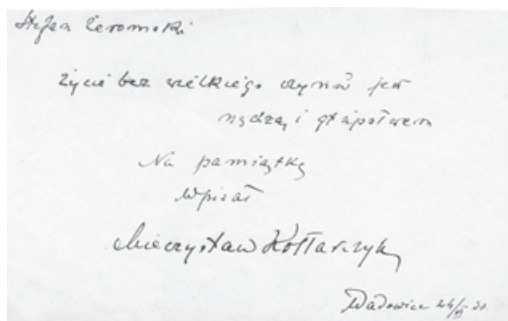 Stefan Żeromski
Życie bez wielkiego czynu jest
nędzą i głupstwem
Na pamiątkę
wpisał
Mieczysław Kotlarczyk
Wadowice